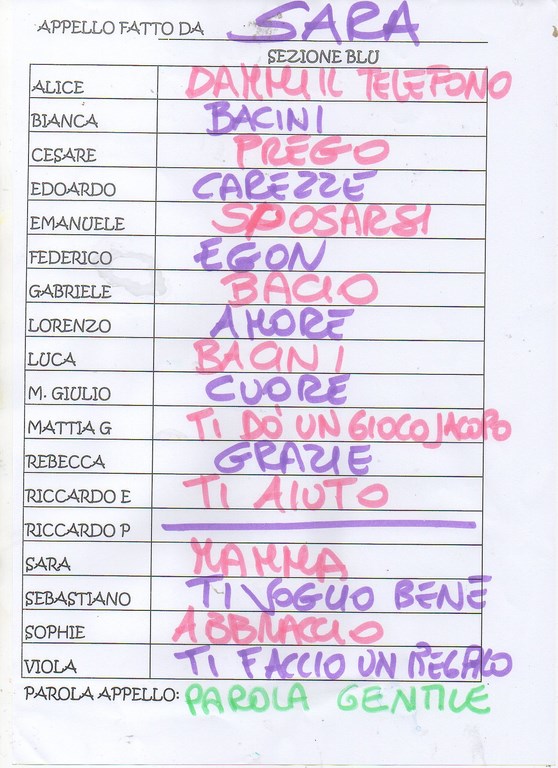 APPELLO FATTO DA SARA
SEZIONE BLU
ALICE DAMMI IL TELEFONO
BIANCA BACINI
CESARE PREGO
EDOARDO CAREZZE
EMANUELE SPOSARSI
FEDERICO EGON
GABRIELE BACIO
LORENZO AMORE
LUCA BACINI
M. GIULIO CUORE
MATTIA G TI DÒ UN GIOCO JACOPO
REBECCA GRAZIE
RICCARDO E TI AIUTO
RICCARDO P
SARA MAMMA
SEBASTIANO TI VOGLIO BENE
SOPHIE ABBRACCIO
VIOLA TI FACCIO UN REGALO
PAROLA APPELLO: PAROLA GENTILE